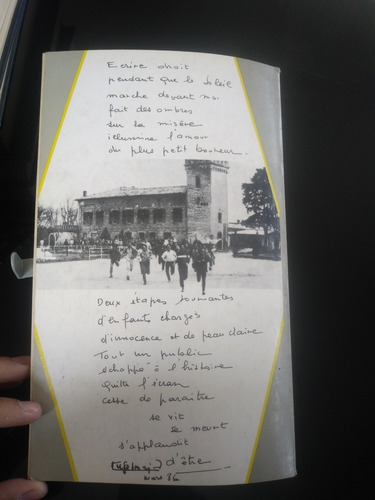 Ecrire droit
pendant que le soleil
marche devant moi
fait des ombres
sur la misère
illumine l'amour
du plus petit bonheur.
Deux étapes tournantes
d'enfants chargés
d'innocence et de peau claire
Tout un public
échappé à l'histoire
quitte l'écran
cesse de paraître
se vit
se meurt
s'applaudit
d'être
mars 86